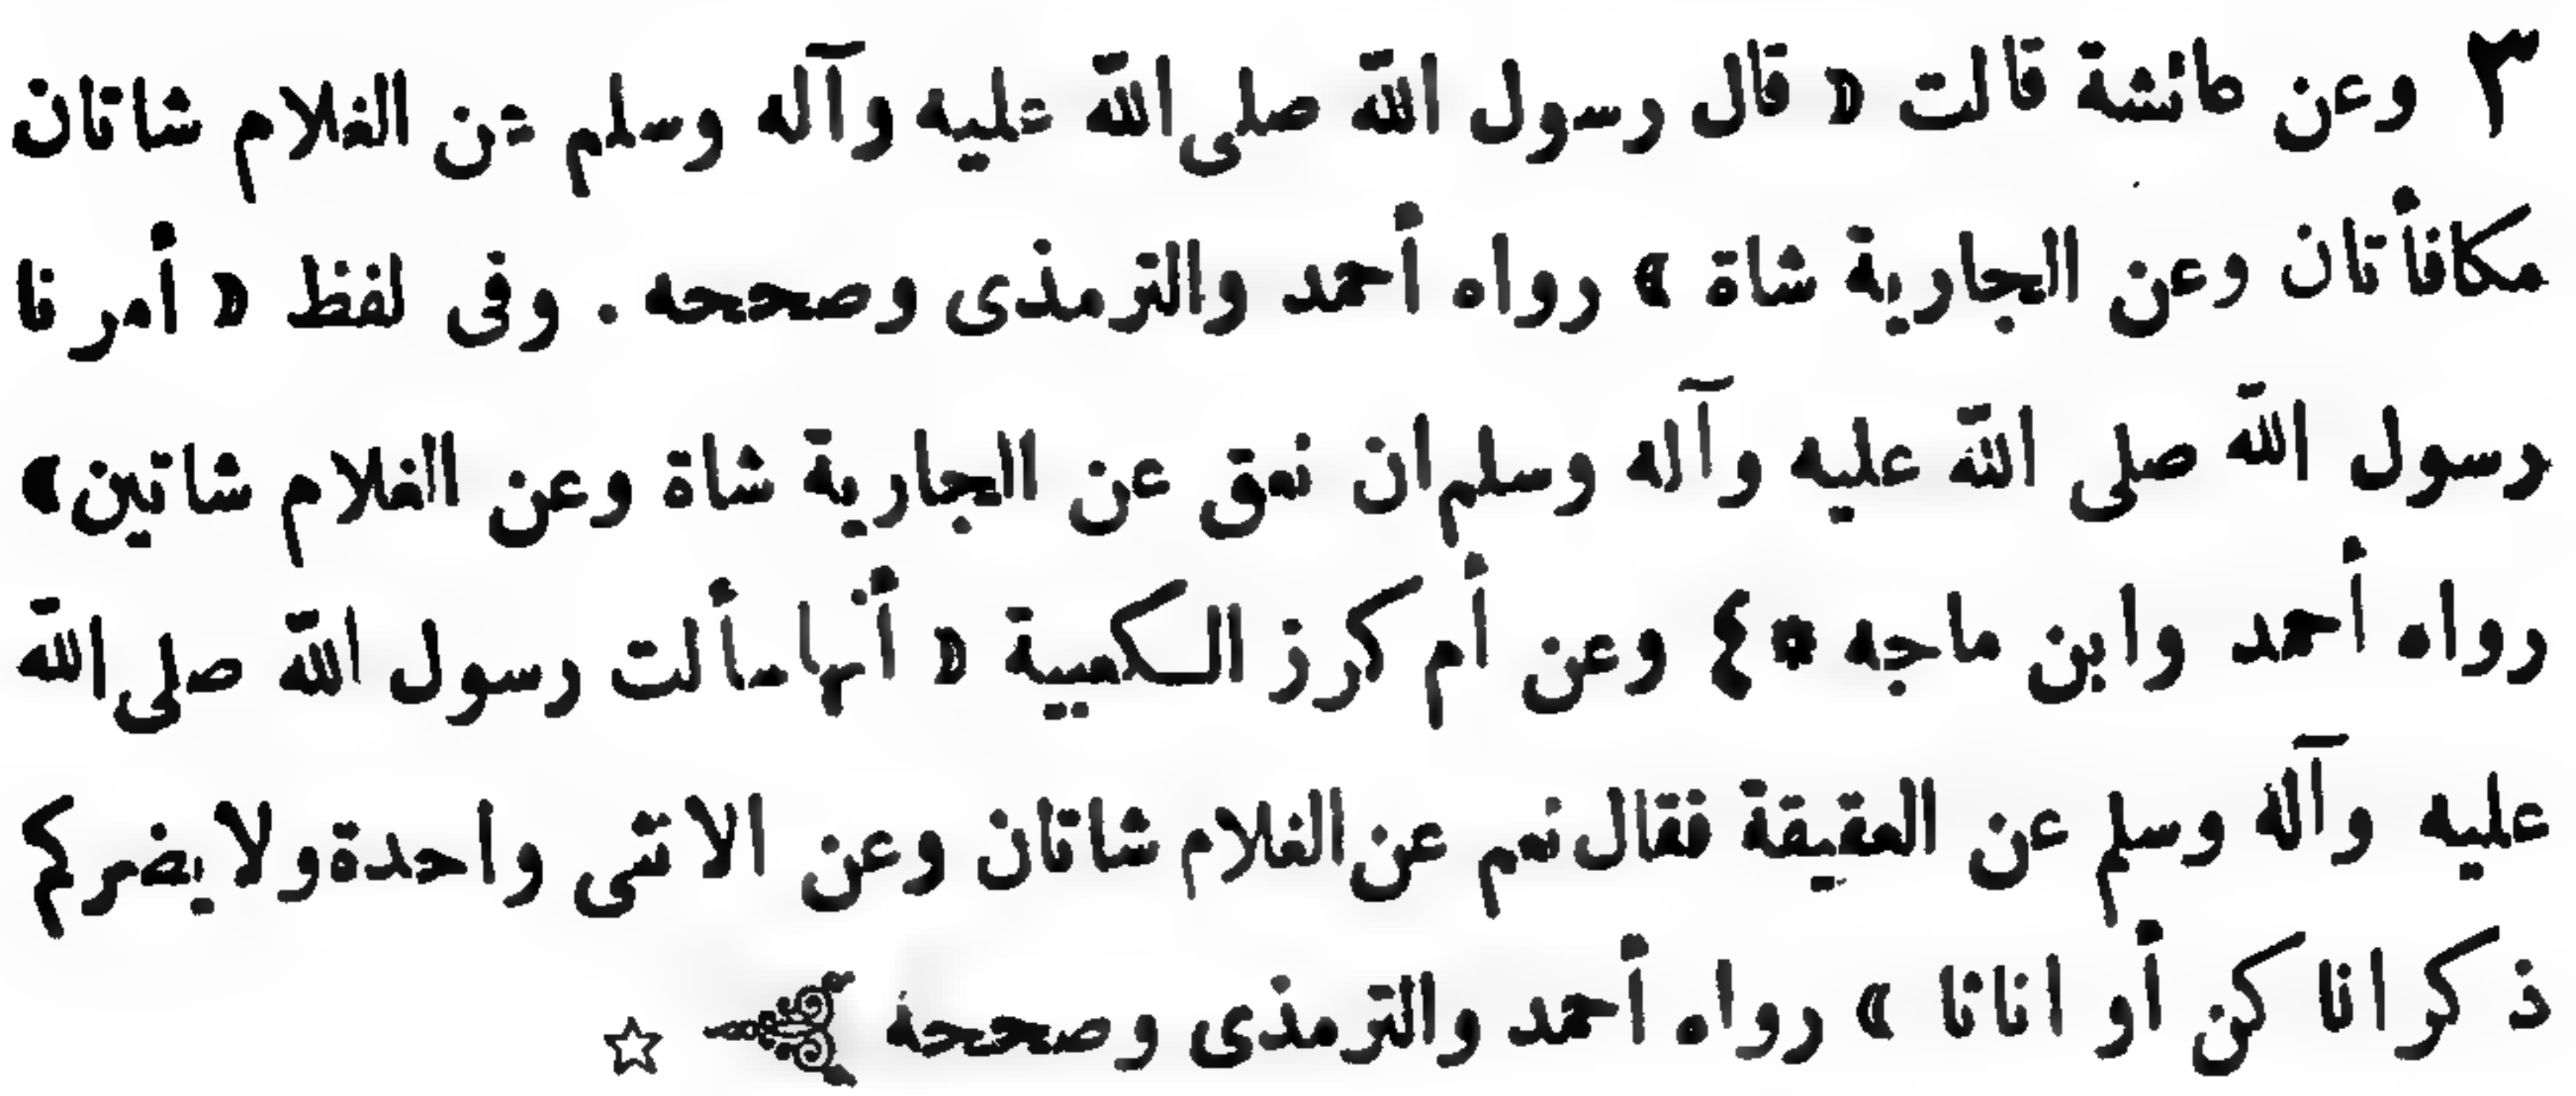 ٣ وعن عائشة قالت « قال رسول الله صلى الله عليه وآله وسلم عن الغلام شاتان
مكافأتان وعن الجارية شاة » رواه أحمد والترمذى وصححه . وفى لفظ « أمرنا
رسول الله صلى الله عليه وآله وسلم ان نعق عن الجارية شاة وعن الغلام شاتين »
رواه أحمد وابن ماجه * ٤ وعن أم كرز الكعبية « أنها سألت رسول الله صلى الله
عليه وآله وسلم عن العقيقة فقال نعم عن الغلام شاتان وعن الانثى واحدة ولا يضركم
ذكرانا كن أو اناثا » رواه أحمد والترمذى وصححه ☆